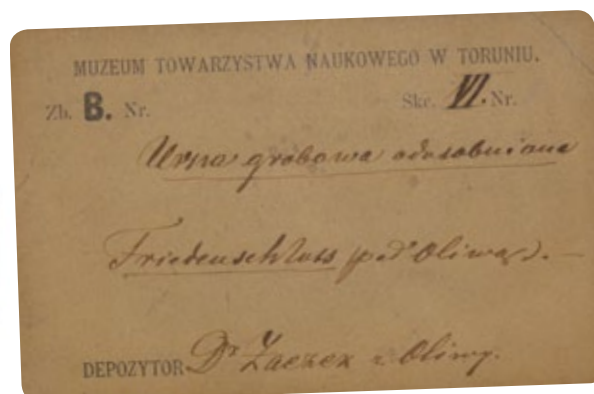 MUZEUM TOWARZYSTWA NAUKOWEGO W TORUNIU.
Zb. B. Nr. Skc. VI. Nr.
Urna grobowa odosobniona
Friedenschloss (pod Oliwą). —
DEPOZYTOR Dr z Oliwy.